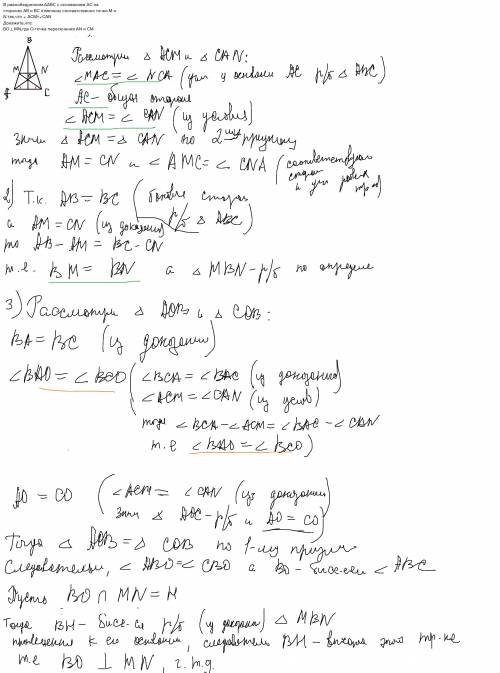 В равнобедренном ΔABC с основанием AC на
сторонах AB и BC отмечены соответственно точки M и
N так,что ∠ ACM=∠CAN
Докажите,что:
BO⊥MN,где O-точка пересечения AN и CM
B
M N
C
Рассмотрим Δ ACM и Δ CAN:
∠MAC = ∠NCA (углы у основания AC р/б Δ ABC)
AC - общая сторона
∠ACM = ∠CAN (из условия)
значит Δ ACM = Δ CAN по 2 признаку
тогда AM = CN и ∠AMC = ∠CNA (соответствующие
стороны
и углы равных
тр-ов)
2) Т.к. AB = BC (боковые стороны
р/б Δ ABC)
а AM = CN (из доказан)
то AB - AM = BC - CN
т.е. BM = BN а Δ MBN - р/б по определе
3) Рассмотрим Δ AOB и Δ COB:
BA = BC (из доказан)
∠BAO = ∠BCO (∠BCA = ∠BAC (из доказан)
∠ACM = ∠CAN (из услов)
тогда ∠BCA - ∠ACM = ∠BAC - ∠CAN
т.е ∠BAO = ∠BCO)
AO = CO (∠ACM = ∠CAN (из доказан)
значит Δ AOC - р/б и AO = CO)
Тогда Δ AOB = Δ COB по 1-му признак
Следовательно, ∠ABO = ∠CBO а BO - биссек ∠ABC
Пусть BO ∩ MN = H
Тогда BH - биссек-са р/б (из доказан) Δ MBN
проведенная к его основанию, следовательно BH - высота этого тр-ка
т.е BO ⊥ MN, ч.т.д.